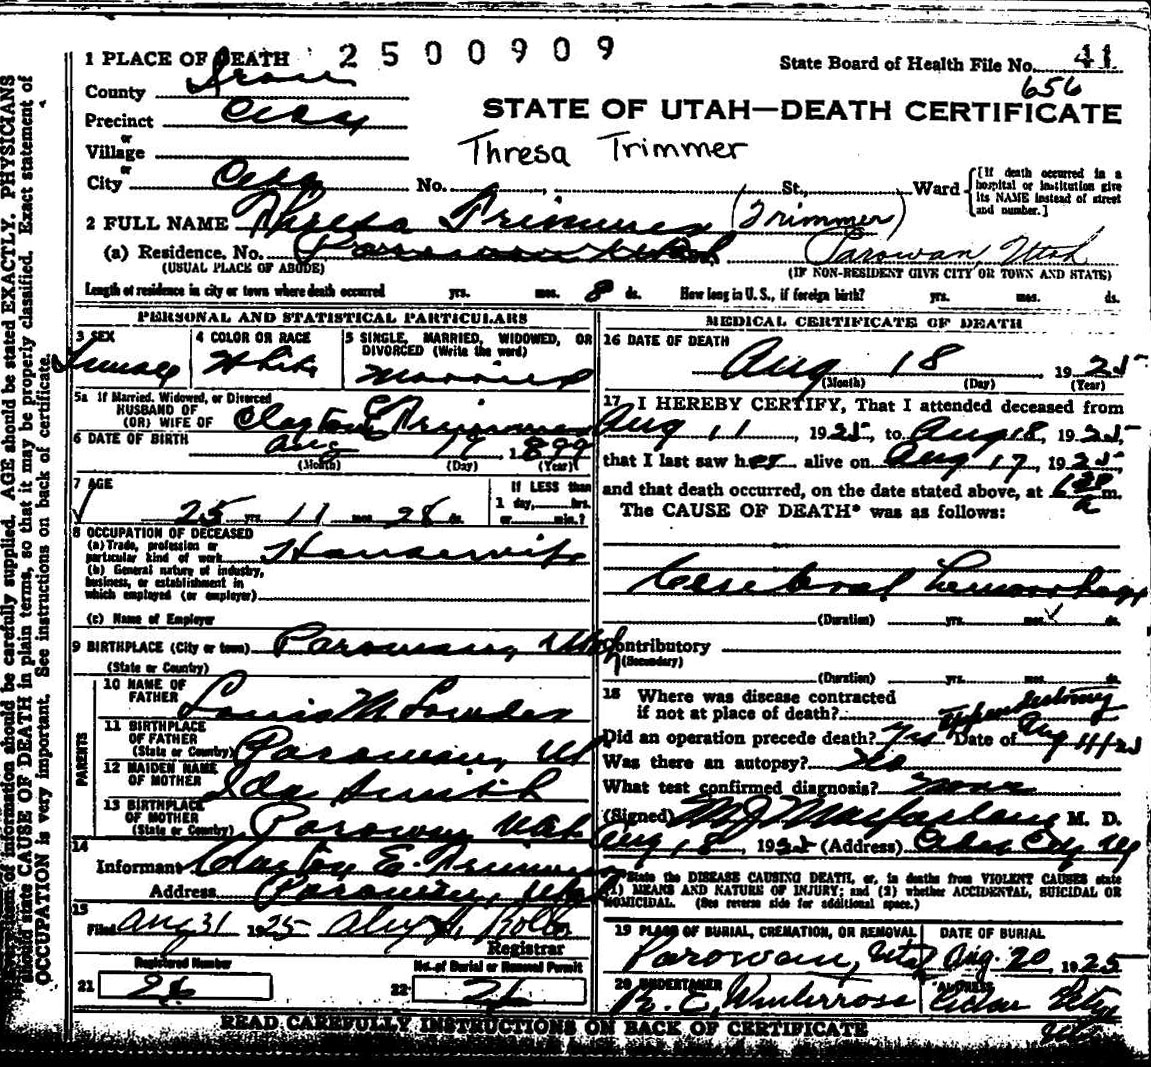 1 PLACE OF DEATH 2500909
State Board of Health File No. 41
656
County Iron
STATE OF UTAH—DEATH CERTIFICATE
Precinct Cedar
or
Village
Thresa Trimmer
or
City Cedar No. St., Ward [If death occurred in a hospital or institution give its NAME instead of street and number.]
2 FULL NAME Thresa Trimmer (Trimmer)
(a) Residence. No. Parowan Utah Parowan, Utah
(USUAL PLACE OF ABODE) (IF NON-RESIDENT GIVE CITY OR TOWN AND STATE)
Length of residence in city or town where death occurred yrs. mos. 8 ds. How long in U. S., if foreign birth? yrs. mos. ds.
PERSONAL AND STATISTICAL PARTICULARS
3 SEX Female
4 COLOR OR RACE White
5 SINGLE, MARRIED, WIDOWED, OR DIVORCED (Write the word)
Married
5a If Married, Widowed, or Divorced
HUSBAND OF
(OR) WIFE OF Clayton E Trimmer
6 DATE OF BIRTH Aug 19 1899
(Month) (Day) (Year)
7 AGE
25 yrs. 11 mos. 28 ds.
If LESS than
1 day, hrs.
or min.?
8 OCCUPATION OF DECEASED
(a) Trade, profession or
particular kind of work Housewife
(b) General nature of industry,
business, or establishment in
which employed (or employer)
(c) Name of Employer
9 BIRTHPLACE (City or town) Parowan, Utah
(State or Country)
PARENTS
10 NAME OF
FATHER Louis M Lowder
11 BIRTHPLACE
OF FATHER
(State or Country) Parowan, Ut
12 MAIDEN NAME
OF MOTHER Ida Smith
13 BIRTHPLACE
OF MOTHER
(State or Country) Parowan Utah
14
Informant Clayton E. Trimmer
Address Parowan, Utah
15
Filed Aug 31 1925
Registrar
Registered Number
21
No. of Burial or Removal Permit
22
MEDICAL CERTIFICATE OF DEATH
16 DATE OF DEATH
Aug 18 1925
(Month) (Day) (Year)
17 I HEREBY CERTIFY, That I attended deceased from
Aug 11, 1925, to Aug 18, 1925,
that I last saw her alive on Aug 17, 1925,
and that death occurred, on the date stated above, at m.
The CAUSE OF DEATH* was as follows:
Cerebral hemorrhage
(Duration) yrs. mos. ds.
Contributory
(Secondary)
(Duration) yrs. mos. ds.
18 Where was disease contracted
if not at place of death?
Appendectomy
Did an operation precede death? Yes Date of Aug 11/25
Was there an autopsy? No
What test confirmed diagnosis? None
(Signed) M J Macfarlane M. D.
Aug 18, 1925 (Address) Cedar City Ut
*State the DISEASE CAUSING DEATH, or, in deaths from VIOLENT CAUSES state
(1) MEANS AND NATURE OF INJURY; and (2) whether ACCIDENTAL, SUICIDAL OR
HOMICIDAL. (See reverse side for additional space.)
19 PLACE OF BURIAL, CREMATION, OR REMOVAL
Parowan, Utah
DATE OF BURIAL
Aug. 20, 1925
20 UNDERTAKER
R. C. Winterrose
ADDRESS
Cedar City
Utah
READ CAREFULLY INSTRUCTIONS ON BACK OF CERTIFICATE
information should be carefully supplied. AGE should be stated EXACTLY. PHYSICIANS
should state CAUSE OF DEATH in plain terms, so that it may be properly classified. Exact statement of
OCCUPATION is very important. See instructions on back of certificate.